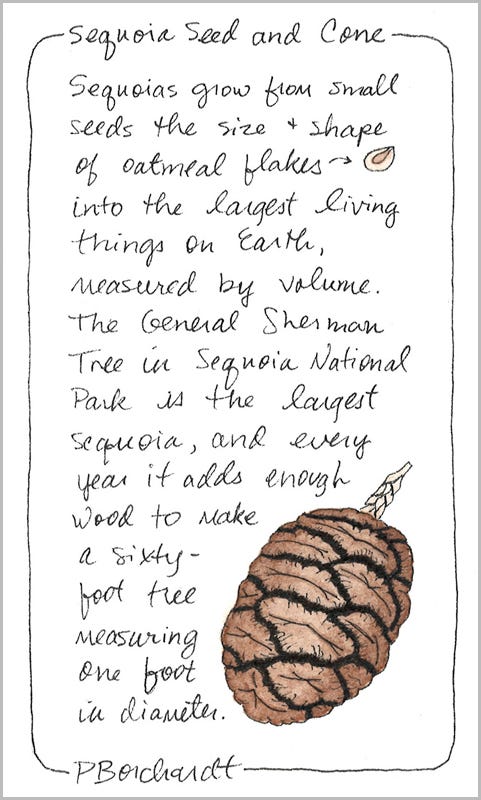 Sequoia Seed and Cone
Sequoias grow from small
seeds the size + shape
of oatmeal flakes →
into the largest living
things on Earth,
measured by volume.
The General Sherman
Tree in Sequoia National
Park is the largest
sequoia, and every
year it adds enough
wood to make
a sixty-
foot tree
measuring
one foot
in diameter.
PBorchardt